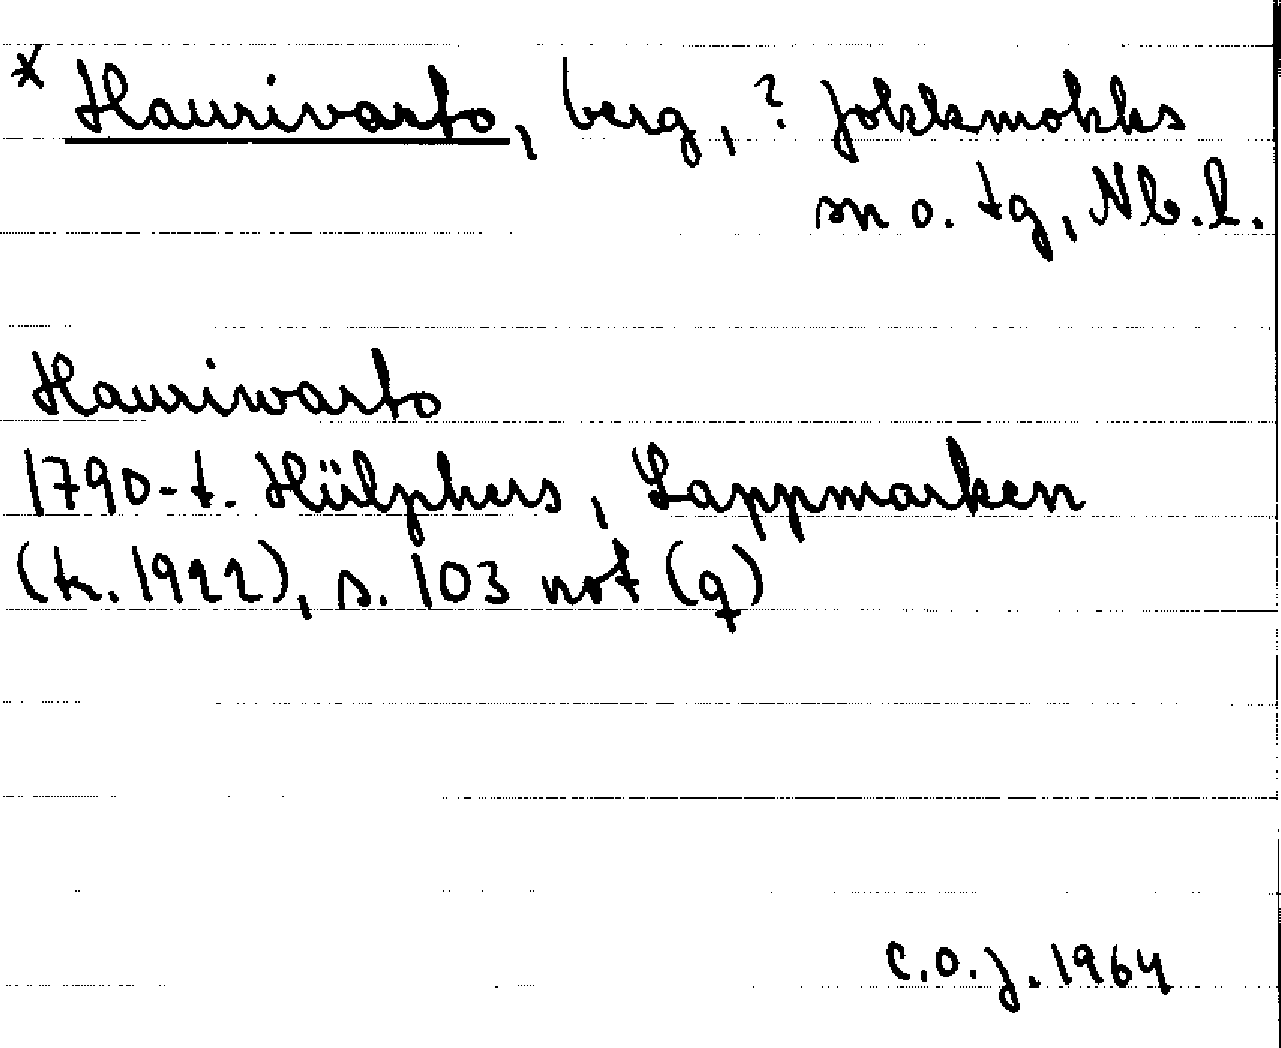 * Haurivarto, berg, ? Jokkmokks
sn o. tg, Nb.l.
Hauriwarto
1790-t. Hülphers, Lappmarken
(tr. 1922), s. 103 not (q)
C.O.J. 1964